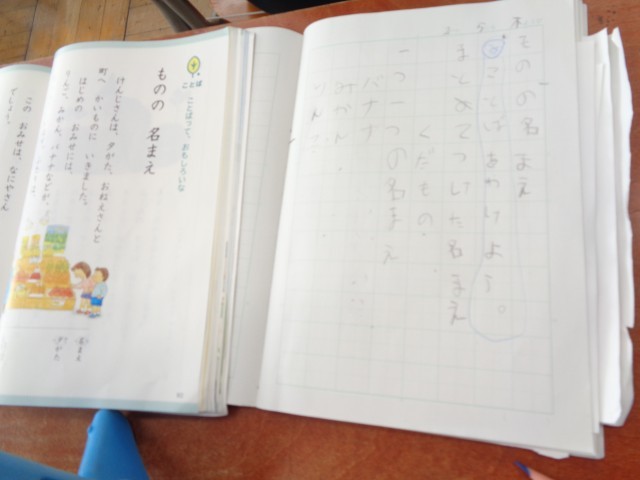 ものの名まえ
ことばをあわけよう。
まとめてつけた名まえ
くだもの
一つ一つの名まえ
バナナ
みかん
りんご
ことば
ことばって、おもしろいな
ものの 名まえ
けんじさんは、夕がた、おねえさんと
町へ かいものに いきました。
はじめの おみせには、
りんご、みかん、バナナなどが、
この おみせは、なにやさん
でしょう。